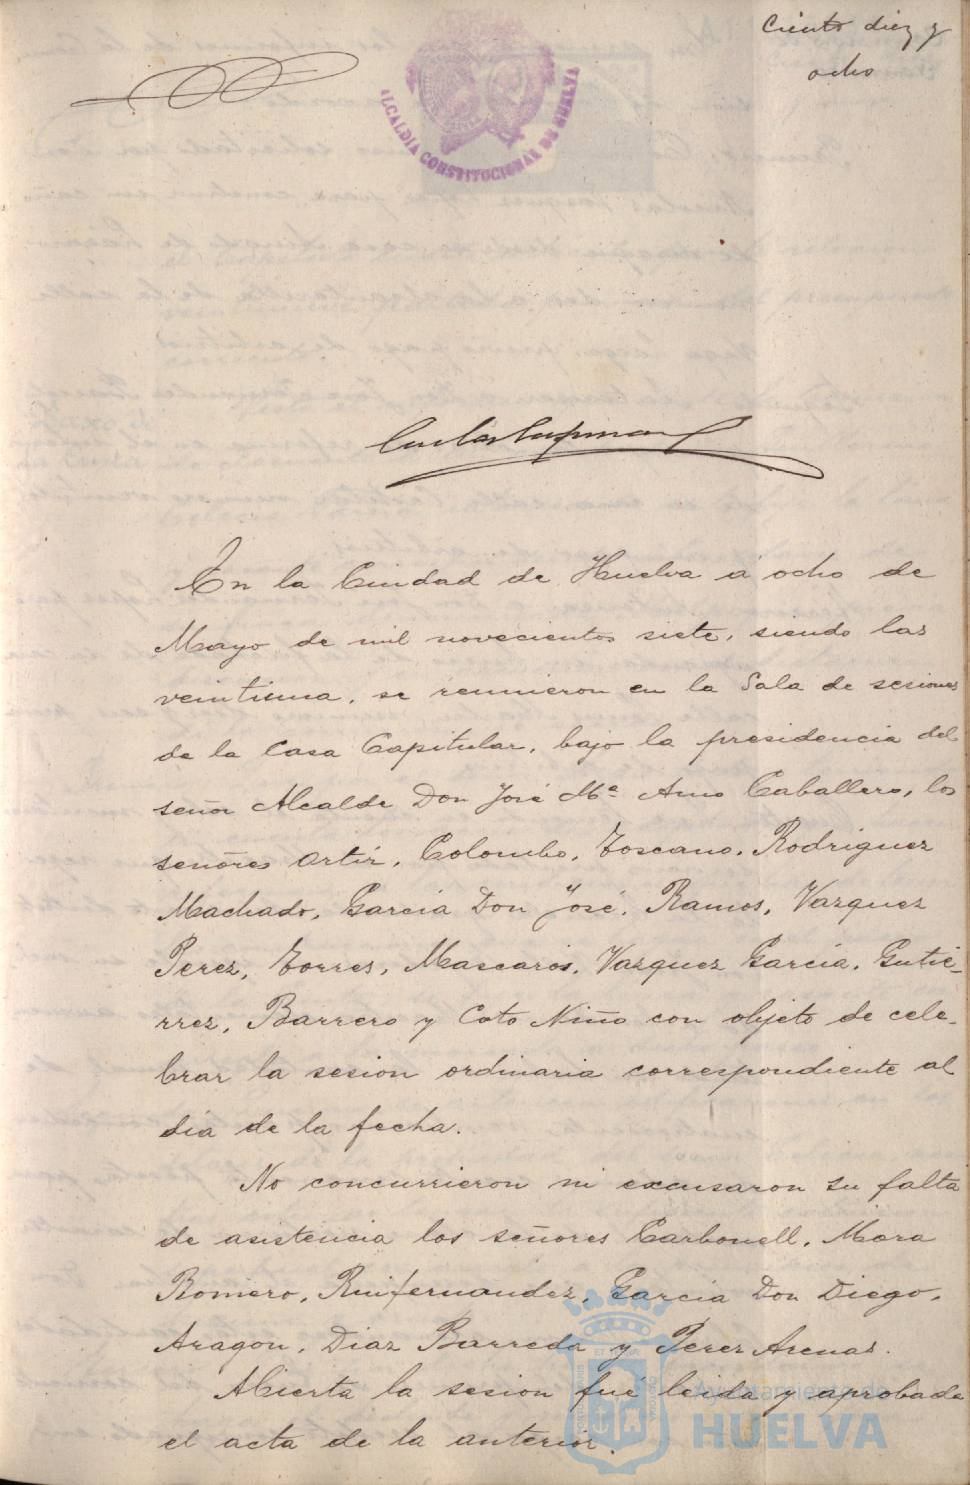 Ciento diez y
ocho
ALCALDIA CONSTITUCIONAL DE HUELVA
En la Ciudad de Huelva á ocho de
Mayo de mil novecientos siete, siendo las
veintiuna, se reunieron en la Sala de sesiones
de la Casa Capitular, bajo la presidencia del
señor Alcalde Don José Mª Amo Caballero, los
señores Ortiz, Colombo, Toscano, Rodriguez
Machado, Garcia Don José, Ramos, Vazquez
Perez, Torres, Mascaros, Vazquez García, Gutié-
rrez, Barrero y Coto Niño con objeto de cele-
brar la sesion ordinaria correspondiente al
dia de la fecha.
No concurrieron ni excusaron su falta
de asistencia los señores Carbonell, Mora
Romero, Ruifernandez, Garcia Don Diego,
Aragon, Diaz Barreda y Perez Arenas.
Abierta la sesion fué leida y aprobada
el acta de la anterior.
Ayuntamiento de
HUELVA